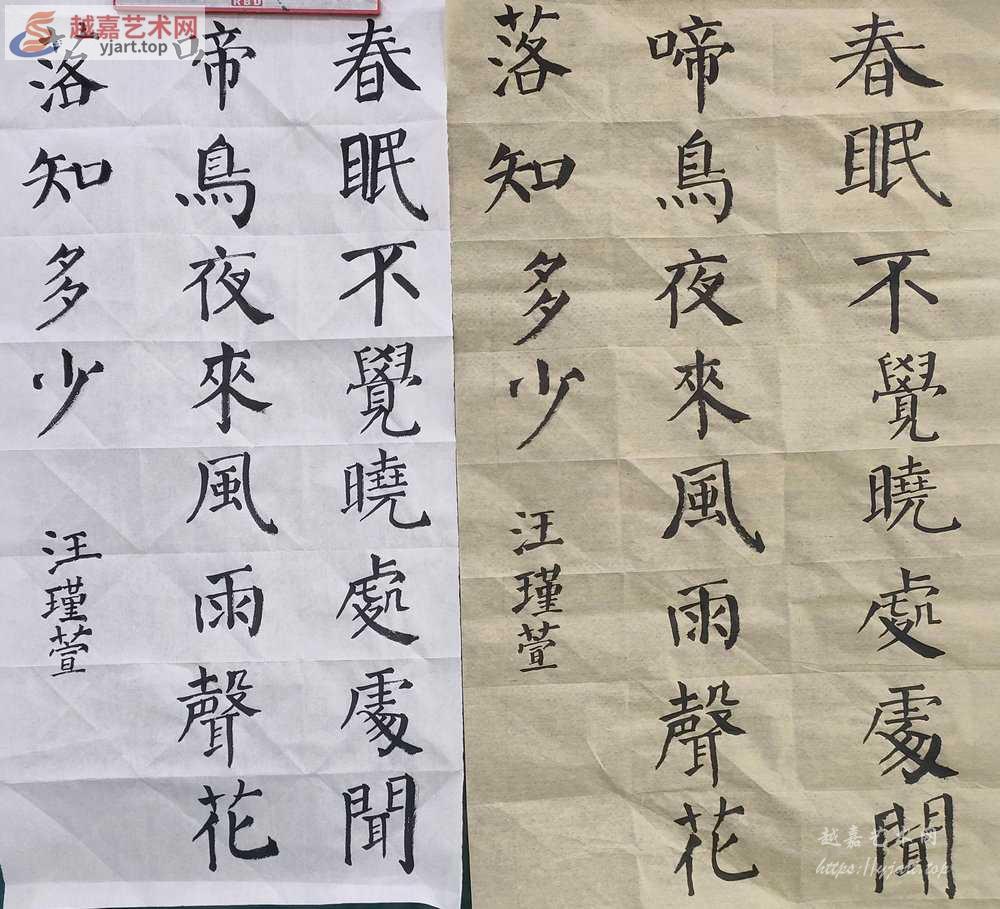 越嘉艺术网
yjart.top
RBD
春眠不覺曉處處聞
啼鳥夜來風雨聲花
落知多少
汪瑾萱
春眠不覺曉處處聞
啼鳥夜來風雨聲花
落知多少
汪瑾萱
越嘉艺术网
https://yjart.top